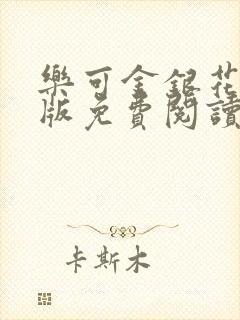 樂可金銀花
版免費閱讀
卡斯木